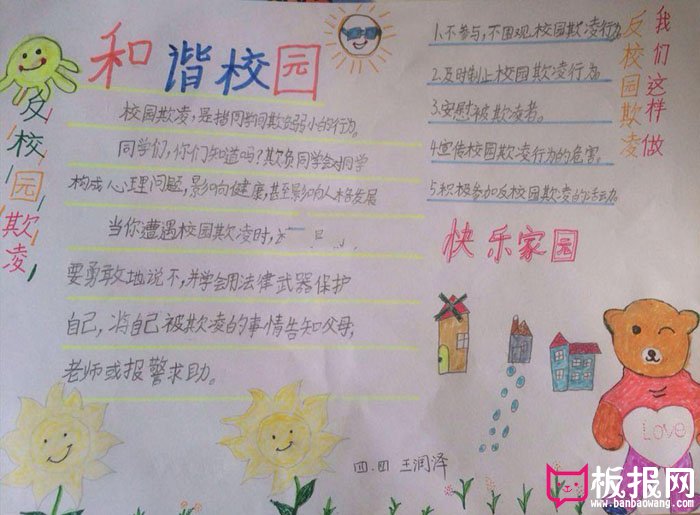 和谐校园
反校园欺凌
校园欺凌，是指同学间欺负弱小的行为。
同学们，你们知道吗？欺负同学会对同学
构成心理问题，影响健康，甚至影响人格发展
当你遭遇校园欺凌时，
要勇敢地说不，并学会用法律武器保护
自己，将自己被欺凌的事情告知父母，
老师或报警求助。
我们这样做
反校园欺凌
1.不参与，不围观校园欺凌行为。
2.及时制止校园欺凌行为。
3.安慰被欺凌者。
4.宣传校园欺凌行为的危害。
5.积极参加反校园欺凌的活动。
快乐家园
Love
四.四 王润泽
板报网
www.banbaowang.com